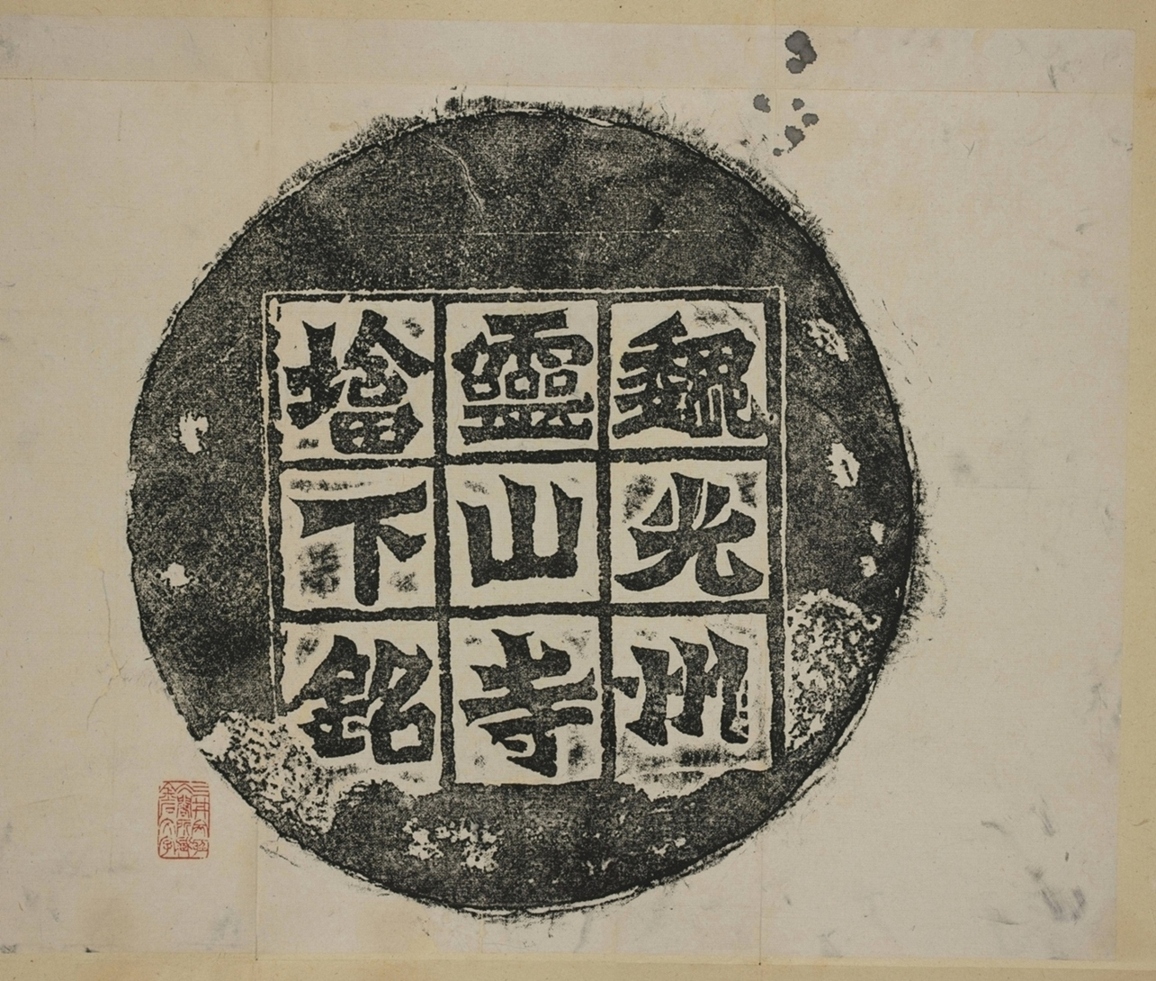 魏光州
靈山寺
塔下銘